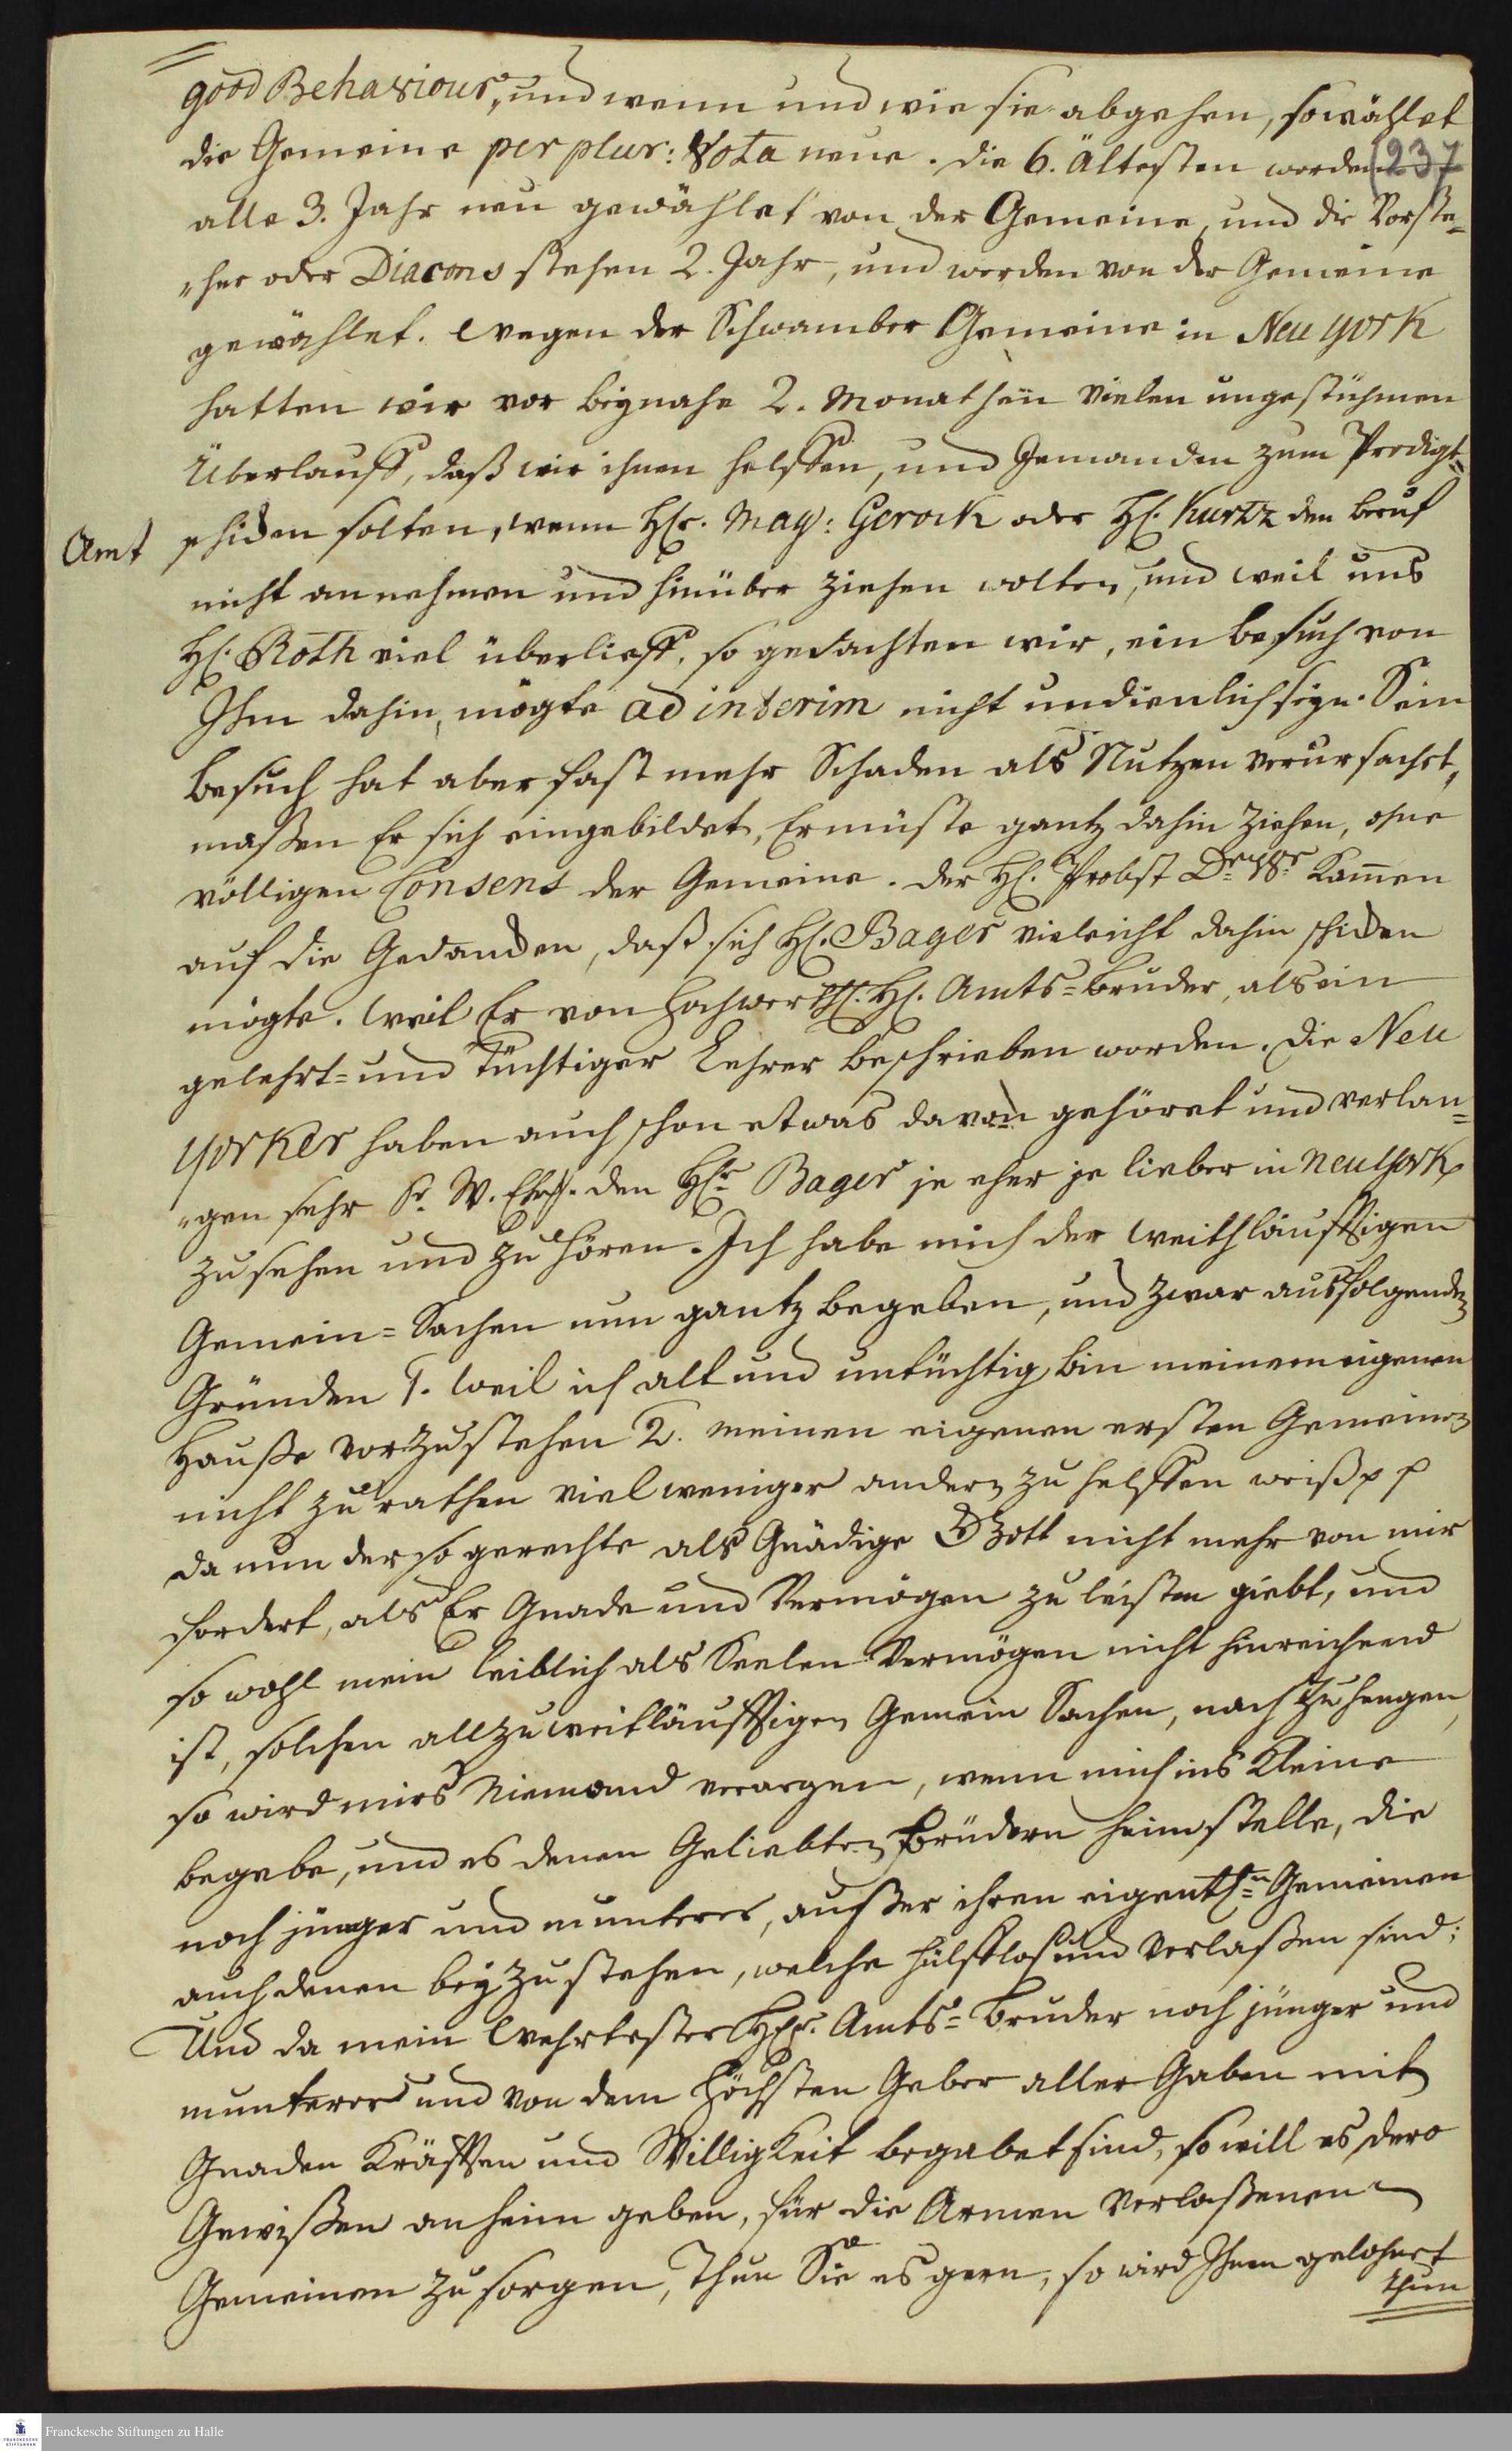 good Behaviour, und wenn und wie sie abgehen, so wählet
die Gemeine per plur: Vota neue. die 6. Ältesten werden
(237
alle 3. Jahr neu gewählet von der Gemeine, und die Vorste-
"her oder Diacons stehen 2. Jahr, und werden von der Gemeine
gewählet. Wegen der Schwamber Gemeine in Neu york
hatten wir vor beynahe 2. Monathen vielen ungestühmen
Überlauff, daß wir ihnen helffen, und Jemanden zum Predigt-
Amt schicken solten, wenn Hr. Mag: Gerock oder H. Kurtz den beruf
nicht annehmen und hinüber ziehen wolten, und weil uns
H. Roth viel überlieff, so gedachten wir, ein besuch von
Ihm dahin, mögte ad interim nicht undienlich seyn. Sein
besuch hat aber fast mehr Schaden als Nutzen verursachet,
maßen Er sich eingebildet, Er müste gantz dahin ziehen, ohne
völligen Consens der Gemeine. der H. Probst Dr. Wr. Kamen
auf die Gedancken, daß sich H. Bager vieleicht dahin schicken
mögte. weil Er von Hochwerth. H. Amts=bruder, als ein
gelehrt= und tüchtiger Lehrer beschrieben worden. Die Neu
yorker haben auch schon etwas davon gehöret und verlan=
"gen sehr Sr. W. Ehrw. den Hr. Bager je eher je lieber in Neu york
zu sehen und zu hören. Ich habe mich der weithläufftigen
Gemein=Sachen nun gantz begeben, und zwar aus folgenden
Gründen 1. weil ich alt und untüchtig bin meinem eigenen
Hauße vorzustehen 2. meinen eigenen ersten Gemeinen
nicht zu rathen vielweniger andern zu helffen weiß p p
da nun der so gerechte als Gnädige Gott nicht mehr von mir
fordert, als Er Gnade und Vermögen zu leisten giebt, und
so wohl mein leiblich als Seelen Vermögen nicht hinreichend
ist, solchen allzuweitläufftigen Gemein Sachen, nach zu hengen,
so wird mirs Niemand verargen, wenn mich ins Kleine
begebe, und es denen Geliebten Brüdern heimstelle, die
noch jünger und munterer, außer ihren eigentl.n Gemeinen
auch denen beyzustehen, welche hülfflos und verlaßen sind;
Und da mein Wehrtester Hr. Amts=bruder noch jünger und
munterer und von dem Höchsten Geber aller Gaben mit
Gnaden Kräfften und Willigkeit begabet sind, so will es dero
Gewißen anheim geben, für die Armen verlaßenen
Gemeinen zu sorgen, Thun Sie es gern, so wird Ihnen gelohnet
thun
Franckesche Stiftungen zu Halle
FRANCKESCHE STIFTUNGEN